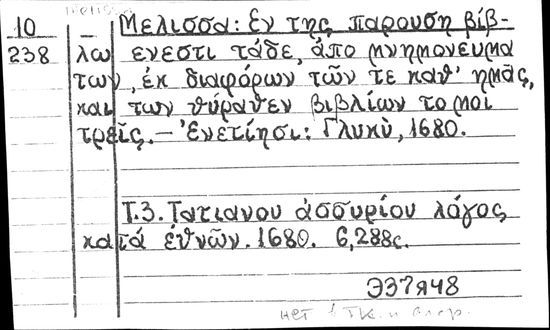 Мелисса
10 – Μελισσα: Εν της παρουση βίβ-
238 λω ενεστι τάδε, άπο μνημονευμα
των, έκ διαφόρων τῶν τε καθ' ημᾶς,
και των θύραθεν βιβλίων τομοι
τρεῖς. – Ένετίησι: Γλυκὺ, 1680.
Т.3. Τατιανου άσσυρίου λάγος
κατά έθνῶν. 1680. 6,288с.
Э37948
нет в ГК. и